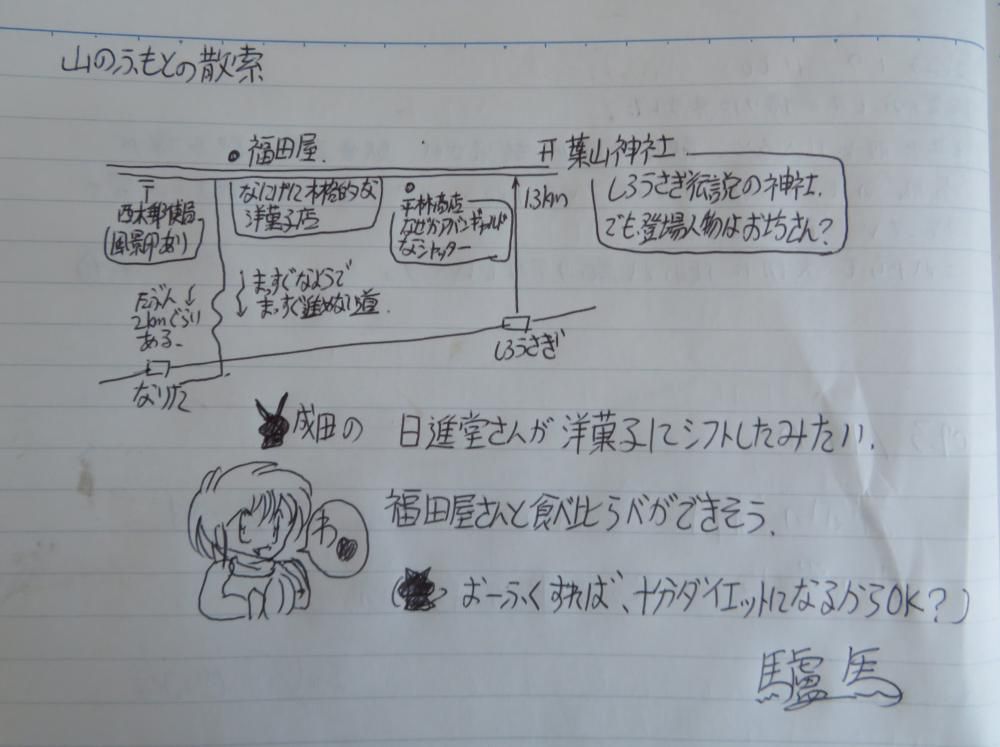 山のふもとの散索
福田屋.
葉山神社
〒
西木郵便局
風景印あり
なにげに本格的な
洋菓子店
平林商店
なぜかアバンギャルド
なシャッター
1.3km
しろうさぎ伝説の神社.
でも、登場人物はお坊さん?
たぶん
2kmぐらい
ある.
まっすぐなようで
まっすぐ進めない道.
しろうさぎ
なりた
成田の 日進堂さんが洋菓子にシフトしたみたい.
福田屋さんと食べ比らべができそう.
わ
おーふくすれば、十分ダイエットになるからOK?)
驢馬